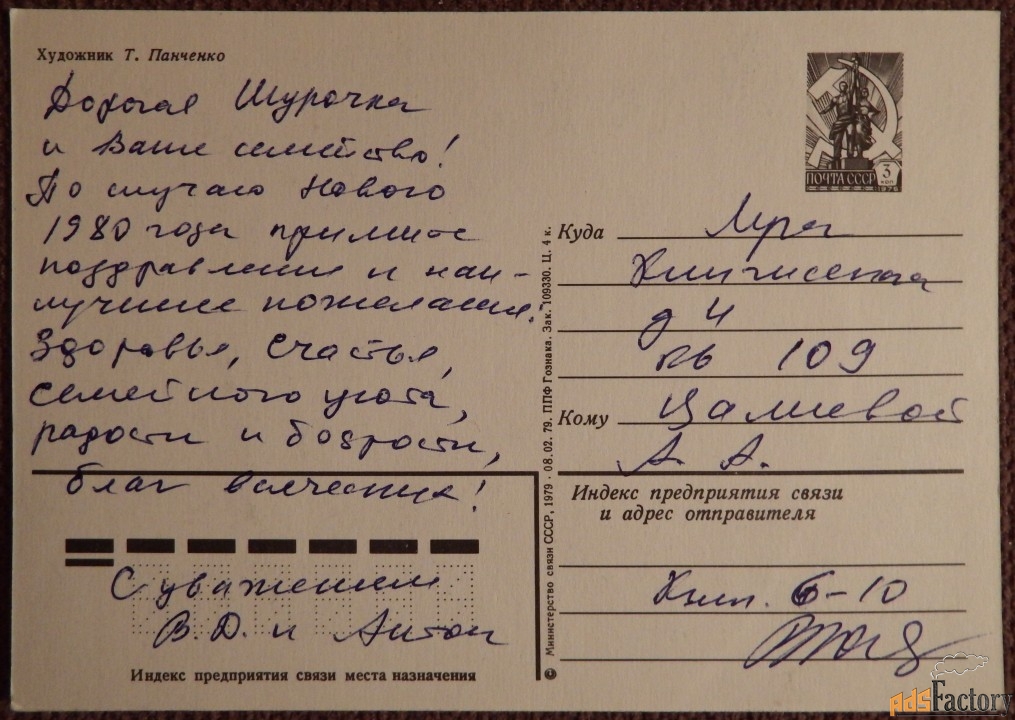 Художник Т. Панченко
Дорогая Шурочка
и Ваше семейство!
По случаю Нового
1980 года примите
поздравления и наи-
лучшие пожелания.
Здоровья, счастья,
семейного уюта,
радости и бодрости,
благ всяческих!
С уважением
В. Д. и Антон
Индекс предприятия связи места назначения
Министерство связи СССР, 1979 · 08.02. 79. ППФ Гознака. Зак. 109330. Ц. 4 к.
ПОЧТА СССР 3 КОП
1976
Куда
д 4
кв 109
Кому Цалиевой
А. А.
Индекс предприятия связи
и адрес отправителя
6-10
AdsFactory